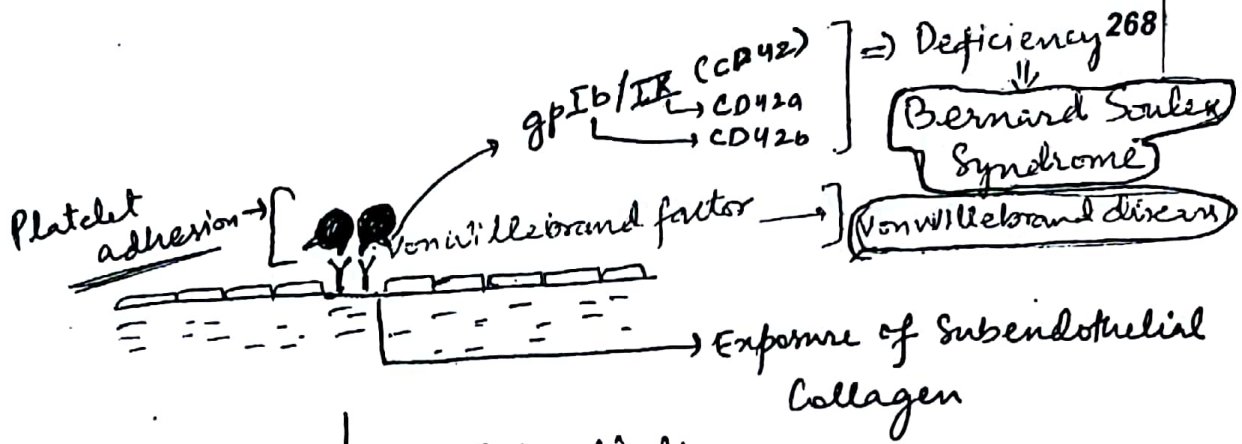 268
gpIb/IX (CD42)
CD42a
CD42b
] => Deficiency
Bernard Soulier
Syndrome
Platelet
adhesion
Vonwillebrand factor
Vonwillebrand disease
Exposure of Subendothelial
Collagen